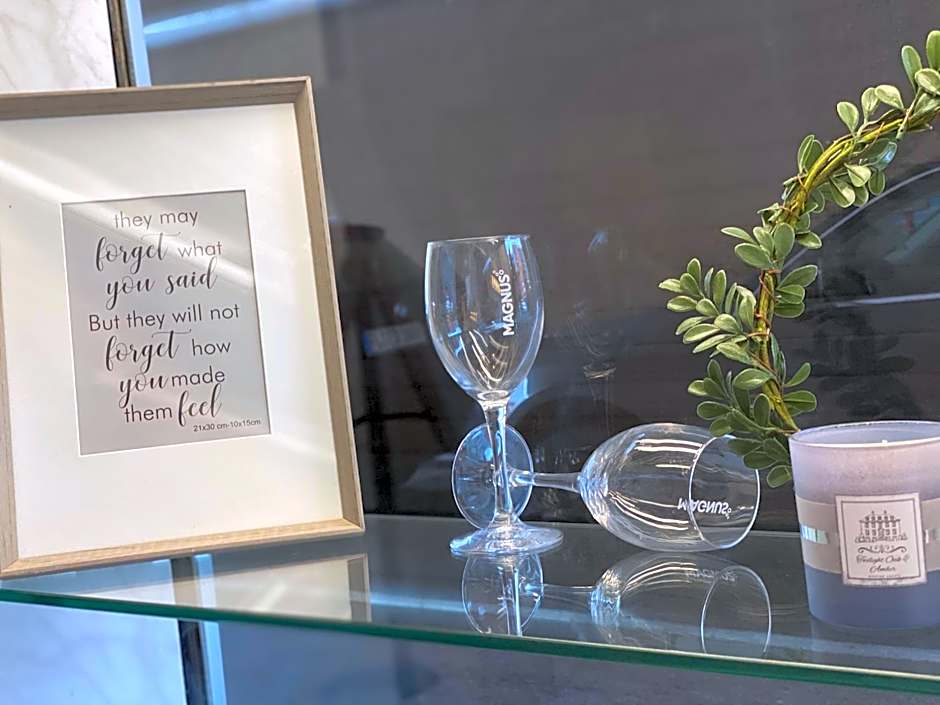 they may
forget what
you said
But they will not
forget how
you made
them feel
21x30 cm-10x15cm
MAGNUS
MAGNUS
Teelight Oak &
Amber